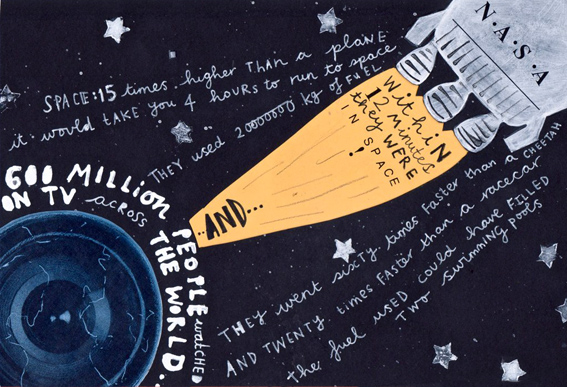 N·A·S·A
SPACE: 15 times higher THAN a plANE
it would TAKE you 4 HOURS to run to space
THEY used 20000000 kg of FUEL
600 MILLION PEOPLE watched
ON TV across THE WORLD...
...AND...
within
12 minutes
they WERE
IN SPACE
!
THEY went sixty times FASTER than a CHEETAH
AND TWENTY times FASTER than a racecar
the fuel used could have FILLED
TWO swimming POOLS